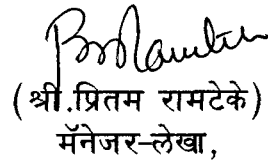 (श्री.प्रितम रामटेके)
मॅनेजर-लेखा,